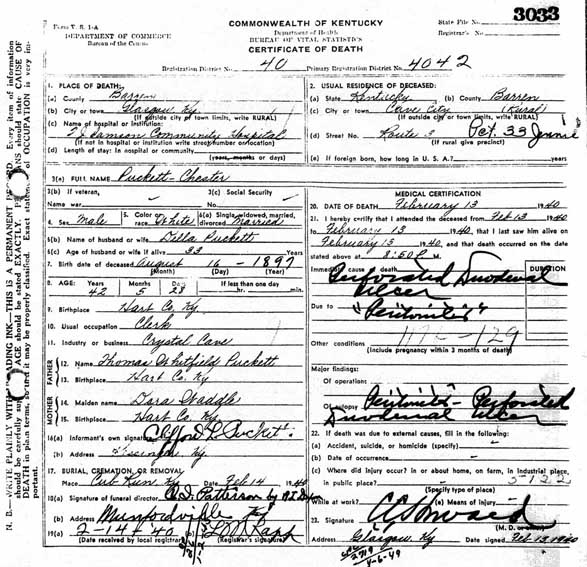 3033
Form V. S. 1-A
DEPARTMENT OF COMMERCE
Bureau of the Census
COMMONWEALTH OF KENTUCKY
Department of Health
BUREAU OF VITAL STATISTICS
CERTIFICATE OF DEATH
State File No.
Registrar's No.
Registration District No. 40 Primary Registration District No. 4042
1. PLACE OF DEATH:
(a) County Barren
(b) City or town Glasgow, Ky
(If outside city or town limits, write RURAL)
(c) Name of hospital or institution:
T. J. Samson Community Hospital
(If not in hospital or institution write street number or location)
(d) Length of stay: In hospital or community
(years, months or days)
2. USUAL RESIDENCE OF DECEASED:
(a) State Kentucky (b) County Barren
(c) City or town Cave City (Rural)
(If outside city or town limits, write RURAL)
(d) Street No. Route 3 Pct. 33
(If rural give precinct)
(e) If foreign born, how long in U. S. A.? years
3(a) FULL NAME Puckett-Chester
3(b) If veteran, name war 3(c) Social Security No.
4. Sex Male 5. Color or race White 6(a) Single, widowed, married, divorced Married
6(b) Name of husband or wife Della Puckett
6(c) Age of husband or wife if alive 33 Years
7. Birth date of deceased August 16 - 1897
(Month) (Day) (Year)
8. AGE: Years Months Days If less than one day
42 5 28 hr. min.
9. Birthplace Hart Co. Ky.
10. Usual occupation Clerk
11. Industry or business Crystal Cave
FATHER
12. Name Thomas Whitfield Puckett
13. Birthplace Hart Co. Ky
MOTHER
14. Maiden name Dora Waddle
15. Birthplace Hart Co. Ky
16(a) Informant's own signature Clifford L. Puckett
(b) Address Ky.
17. BURIAL, CREMATION, OR REMOVAL
Place Cub Run, Ky Date Feb 14 1940
18(a) Signature of funeral director
(b) Address Munfordville Ky
19(a) 2-14-40 (b)
(Date received by local registrar) (Registrar's signature)
MEDICAL CERTIFICATION
20. DATE OF DEATH February 13 1940
21. I hereby certify that I attended the deceased from Feb 13 1940
to February 13 1940, that I last saw him alive on
February 13 1940, and that death occurred on the date
stated above at 8:50 P. M.
DURATION
Immediate cause of death Perforated Duodenal Ulcer
Due to "Peritonitis"
Other conditions
(Include pregnancy within 3 months of death)
Major findings:
Of operations
Of autopsy Peritonitis - Perforated
Duodenal Ulcer
22. If death was due to external causes, fill in the following:
(a) Accident, suicide, or homicide (specify)
(b) Date of occurrence
(c) Where did injury occur? in or about home, on farm, in industrial place,
in public place?
(Specify type of place)
While at work? (e) Means of injury
23. Signature
(M. D. or other)
Address Glasgow, Ky Date signed Feb 13 1940
N. B.—WRITE PLAINLY WITH UNFADING INK—THIS IS A PERMANENT RECORD. Every item of information